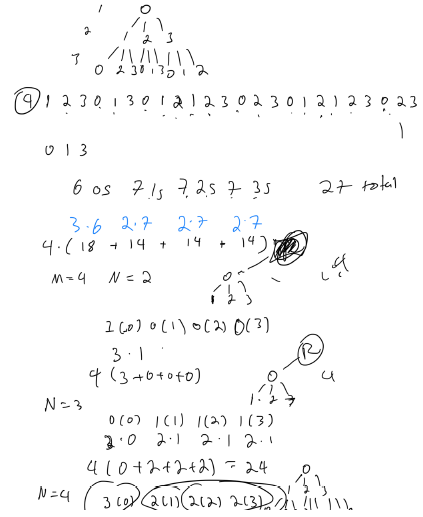 1 0
2 1 2 3
3 0 2 3 0 1 3 0 1 2
④ 1 2 3 0 1 3 0 1 2 1 2 3 0 2 3 0 1 2 1 2 3 0 2 3
1
0 1 3
6 0s 7 1s 7 2s 7 3s 27 total
3·6 2·7 2·7 2·7
4·(18 + 14 + 14 + 14)
M=4 N=2 0
1 2 3
1(0) 0(1) 0(2) 0(3)
3·1 R
4(3+0+0+0) 0 4
1 2 3
N=3
0(0) 1(1) 1(2) 1(3)
3·0 2·1 2·1 2·1
4(0+2+2+2) = 24
0
N=4 3(0) 2(1) 2(2) 2(3) 1 2 3